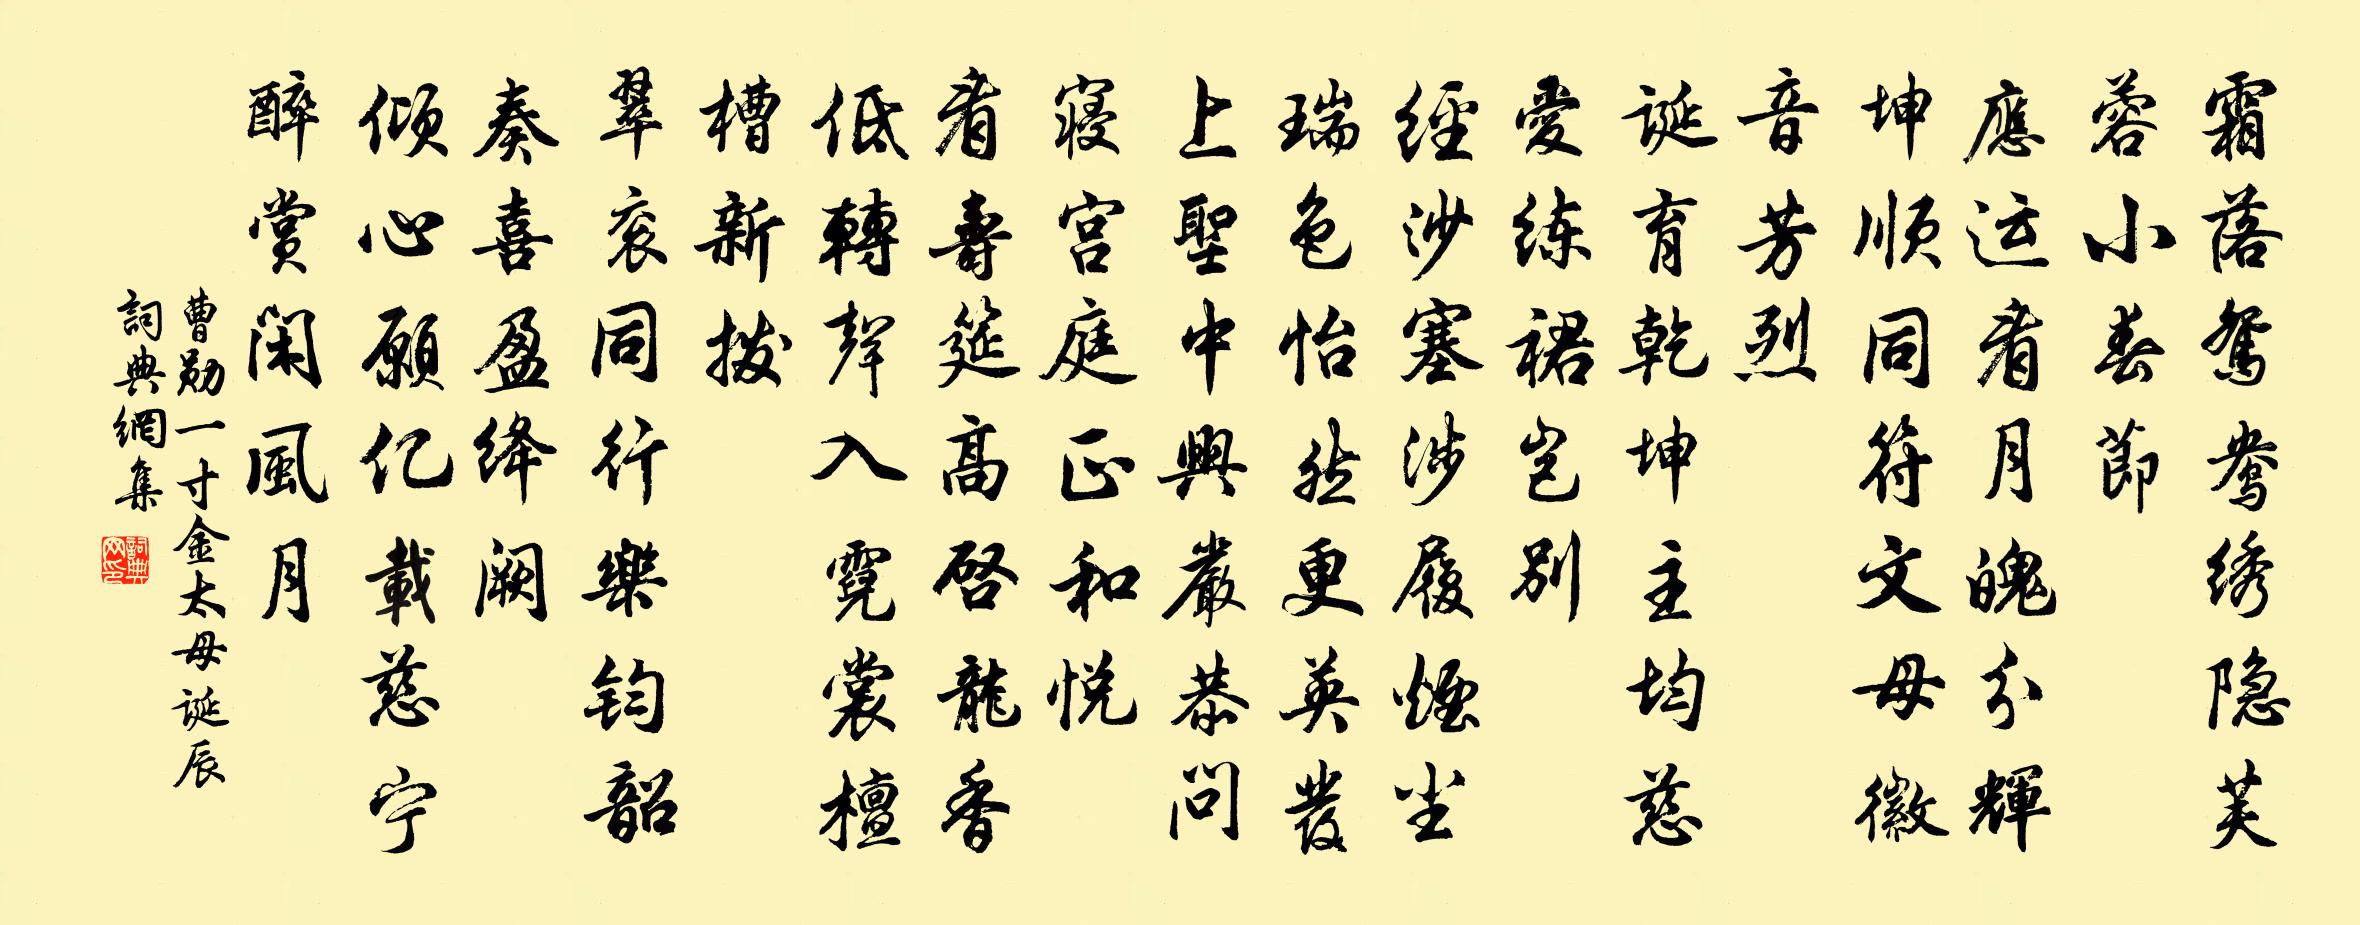 霜落鸳鸯绣隐芙
蓉小春節
應运看月魄分輝
坤顺同符文母徽
音芳烈
诞育乾坤主均慈
愛练裙岂别
經沙塞涉履煙尘
瑞色怡然更英發
上聖中興嚴恭问
寝宫庭正和悦
看壽筵高啓龍香
低轉聲入霓裳檀
槽新拨
翠衮同行樂钧韶
奏喜盈绛阙
倾心願亿載慈宁
醉赏闲風月
曹勋一寸金太母诞辰
詞典網集
詞典网印